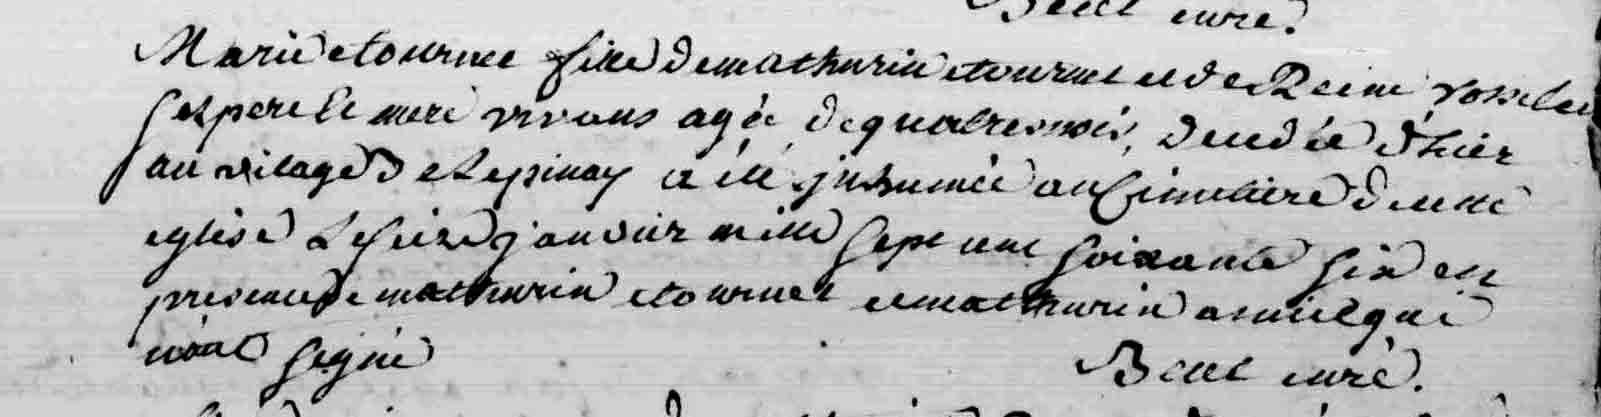 curé.
Marie etournee fille de mathurin etournee et de Reine
ses pere et mere vivans agée de quatre mois, decedée d'hier
au vilage de Lepinay a été inhumée au Cimetiere de cette
eglise Le seize janvier mille sept cent soixante six en
presence de mathurin etournee et mathurin qui
n'ont signé
curé.